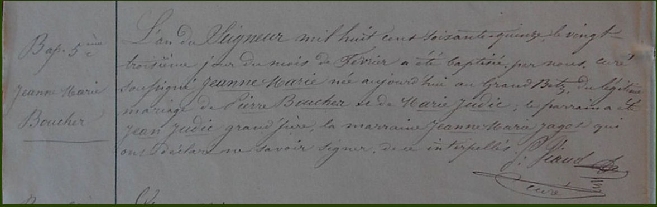 Bap. 5ème
Jeanne Marie
Boucher
L'an du Seigneur mil huit cent soixante-quinze le vingt
troisième jour du mois de Février a été baptisée par nous, curé
soussigné, Jeanne Marie née aujourd'hui au Grand Betz, du légitime
mariage de Pierre Boucher et de Marie Judic; le parrain a été
Jean Judic grand père, la marraine Jeanne Marie Jagot qui
ont déclaré ne savoir signer, de ce interpellés
curé